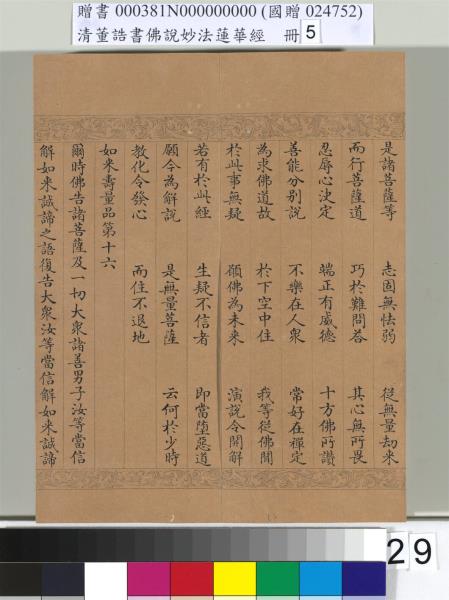 贈書 000381N000000000 (國贈 024752)
清董誥書佛說妙法蓮華經 冊 5
是諸菩薩等 志固無怯弱 從無量劫來
而行菩薩道 巧於難問荅 其心無所畏
忍辱心決定 端正有威德 十方佛所讚
善能分別說 不樂在人衆 常好在禪定
為求佛道故 於下空中住 我等從佛聞
於此事無疑 願佛為未來 演說令開解
若有於此經 生疑不信者 即當墮惡道
願今為解說 是無量菩薩 云何於少時
教化令發心 而住不退地
如來壽量品第十六
爾時佛告諸菩薩及一切大衆諸善男子汝等當信
解如來誠諦之語復告大衆汝等當信解如來誠諦
29